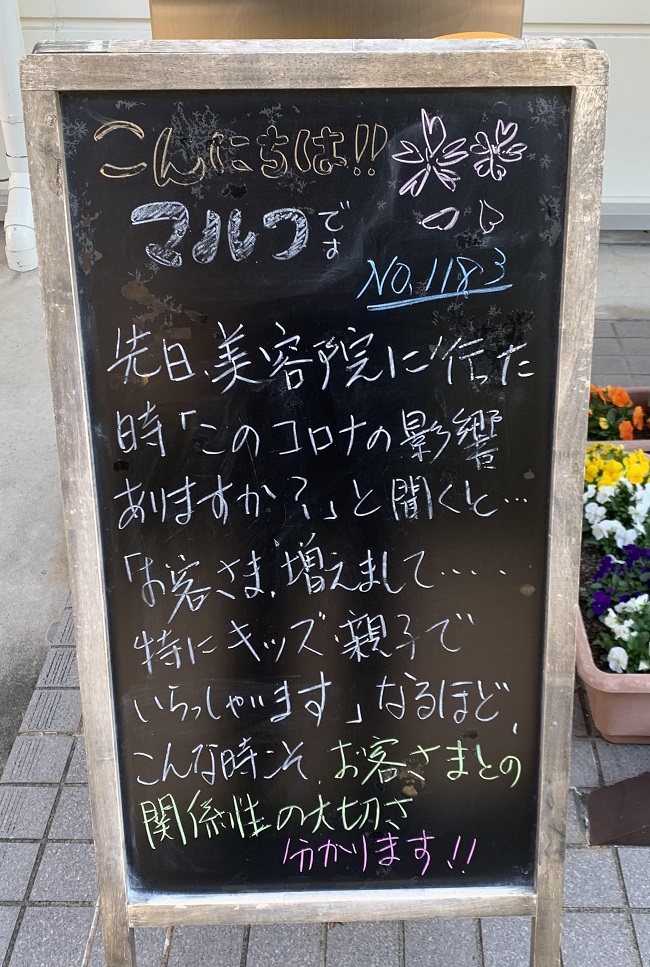 こんにちは!!
マルフです
No.1183
先日、美容院に行った
時「このコロナの影響
ありますか?」と聞くと…
「お客さま、増えまして‥‥
特にキッズ・親子で
いらっしゃいます」なるほど、
こんな時こそ、お客さまとの
関係性の大切さ
分かります!!